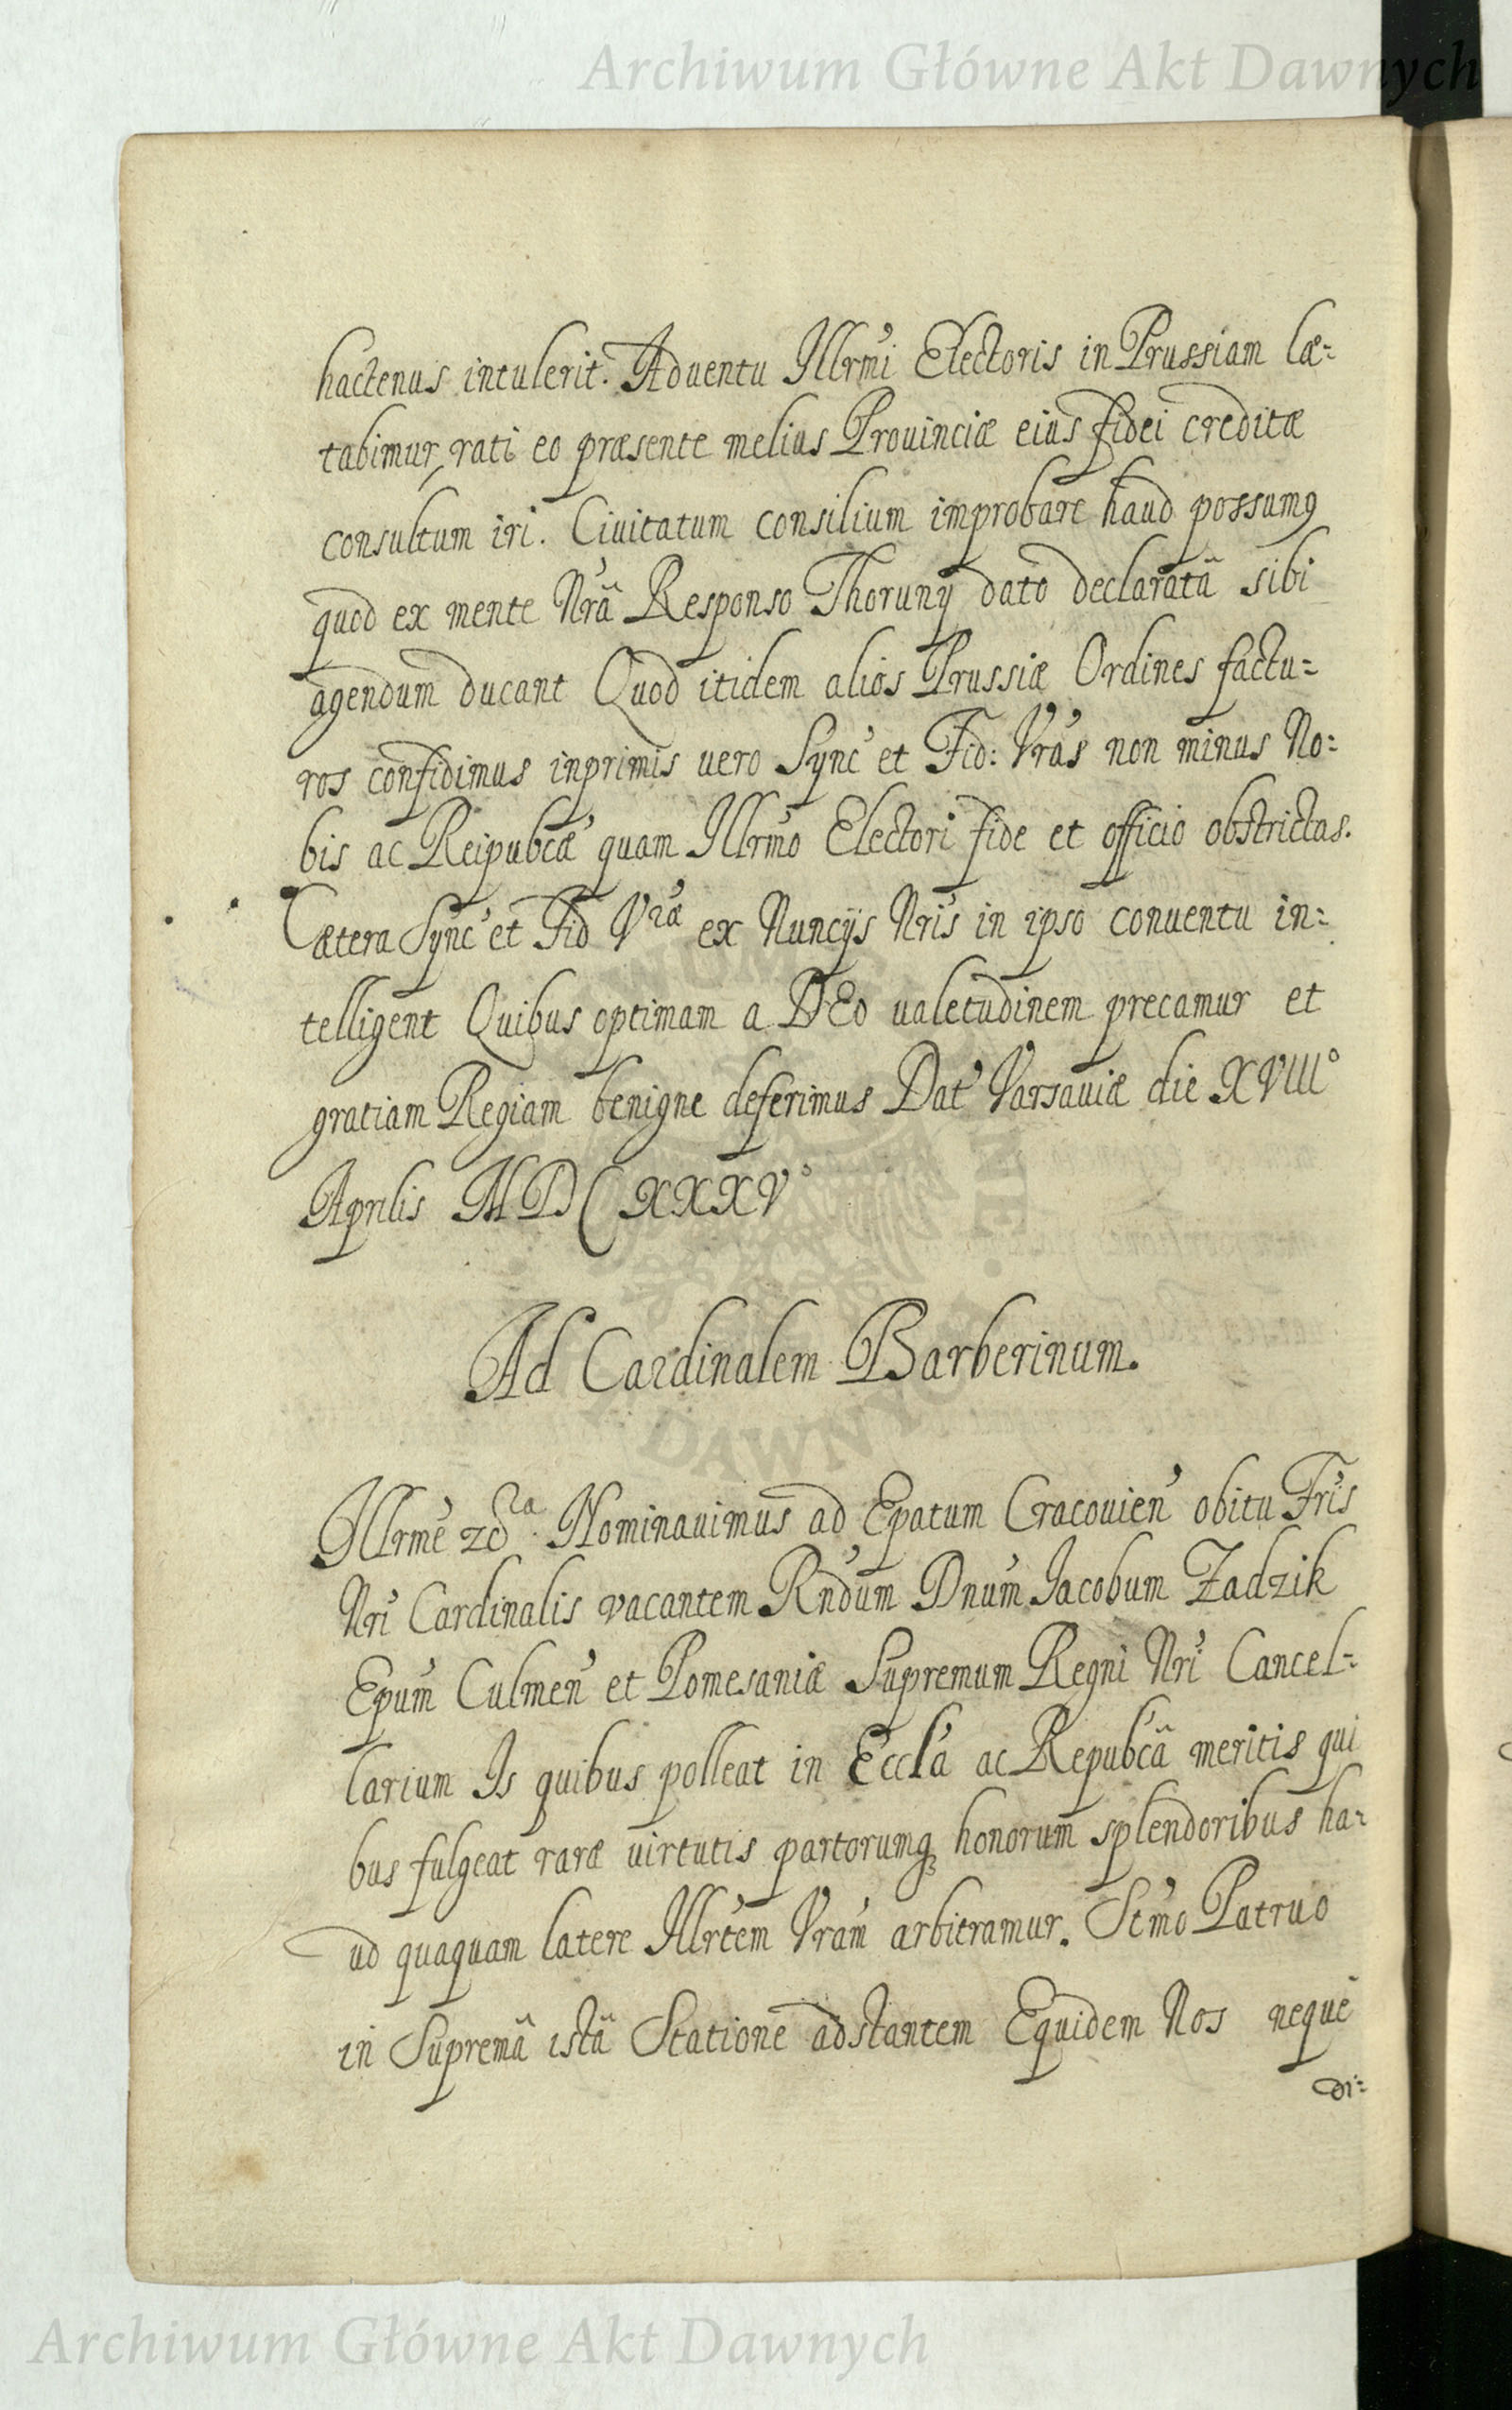 Archiwum Główne Akt Dawnych
hactenus intulerit. Aduentu Illrmi Electoris in Prussiam læ=
tabimur, rati eo præsente melius Prouinciæ eius fidei creditæ
consultum iri. Ciuitatum consilium improbare haud possumꝰ
quod ex mente Nrâ Responso Thorunÿ dato declaratâ sibi
agendum ducant Quod itidem alios Prussiæ Ordines factu=
ros confidimus inprimis uero Sync et Fid: Vras non minus No=
bis ac Reipubcæ quam Illrmo Electori fide et officio obstrictas.
Cætera Sync et Fid Vræ ex Nuncÿs Nris in ipso conuentu in=
telligent Quibus optimam a DEo ualetudinem precamur et
gratiam Regiam benigne deferimus Dat Varsauiæ die XVIII°
Aprilis MDCXXXV°
Ad Cardinalem Barberinum.
Illrme Nominauimus ad Epatum Cracouien obitu Fris
Nri Cardinalis vacantem Rndum Dnum Iacobum Zadzik
Epum Culmen et Pomesaniæ Supremum Regni Nri Cancel=
larium Is quibus polleat in Eccla ac Repubcâ meritis qui
bus fulgeat raræ uirtutis partorumq honorum splendoribus ha=
ud quaquam latere Illrtem Vram arbitramur. Stmo Patruo
in Supremâ istâ Statione adstantem Equidem Nos neque
di=
Archiwum Główne Akt Dawnych